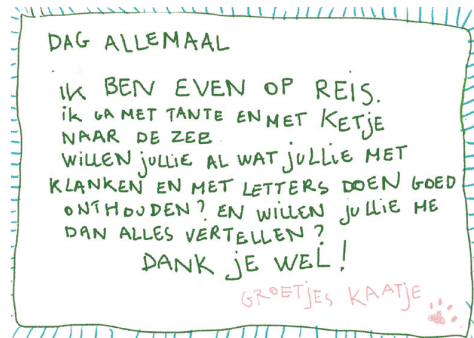 DAG ALLEMAAL
IK BEN EVEN OP REIS.
iK GA MET TANTE EN MET KETJE
NAAR DE ZEE
WILLEN jULLIE AL WAT jULLIE MET
KLANKEN EN MET LETTERS DOEN GOED
ONTHOUDEN? EN WILLEN jULLIE ME
DAN ALLES VERTELLEN?
DANK jE WEL!
GROETjES KAATjE